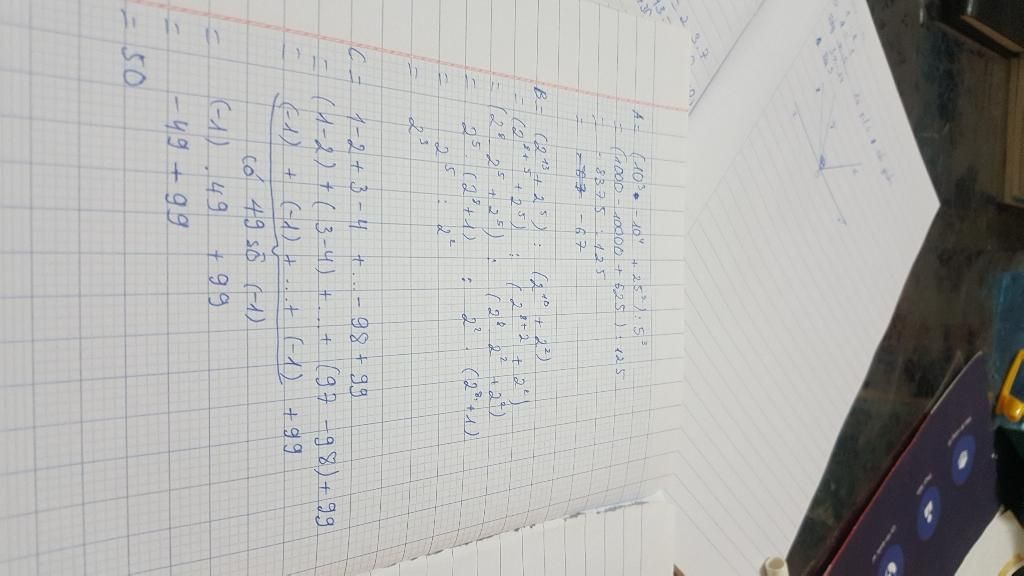 A = (10³ - 10⁴ + 25²) : 5³
= (1000 - 10000 + 625) : 125
= - 8375 : 125
= - 67
B = (2¹³ + 2⁵) : (2¹⁰ + 2²)
= (2⁸⁺⁵ + 2⁵) : (2⁸⁺² + 2²)
= (2⁸ . 2⁵ + 2⁵) : (2⁸ 2² + 2²)
= 2⁵ . (2⁸ + 1) : 2² . (2⁸ + 1)
= 2⁵ : 2²
= 2³
C = 1 - 2 + 3 - 4 + ... - 98 + 99
= (1 - 2) + (3 - 4) + .... + (97 - 98) + 99
= (-1) + (-1) + .... + (-1) + 99
có 49 số (-1)
= (-1) . 49 + 99
= - 49 + 99
= 50